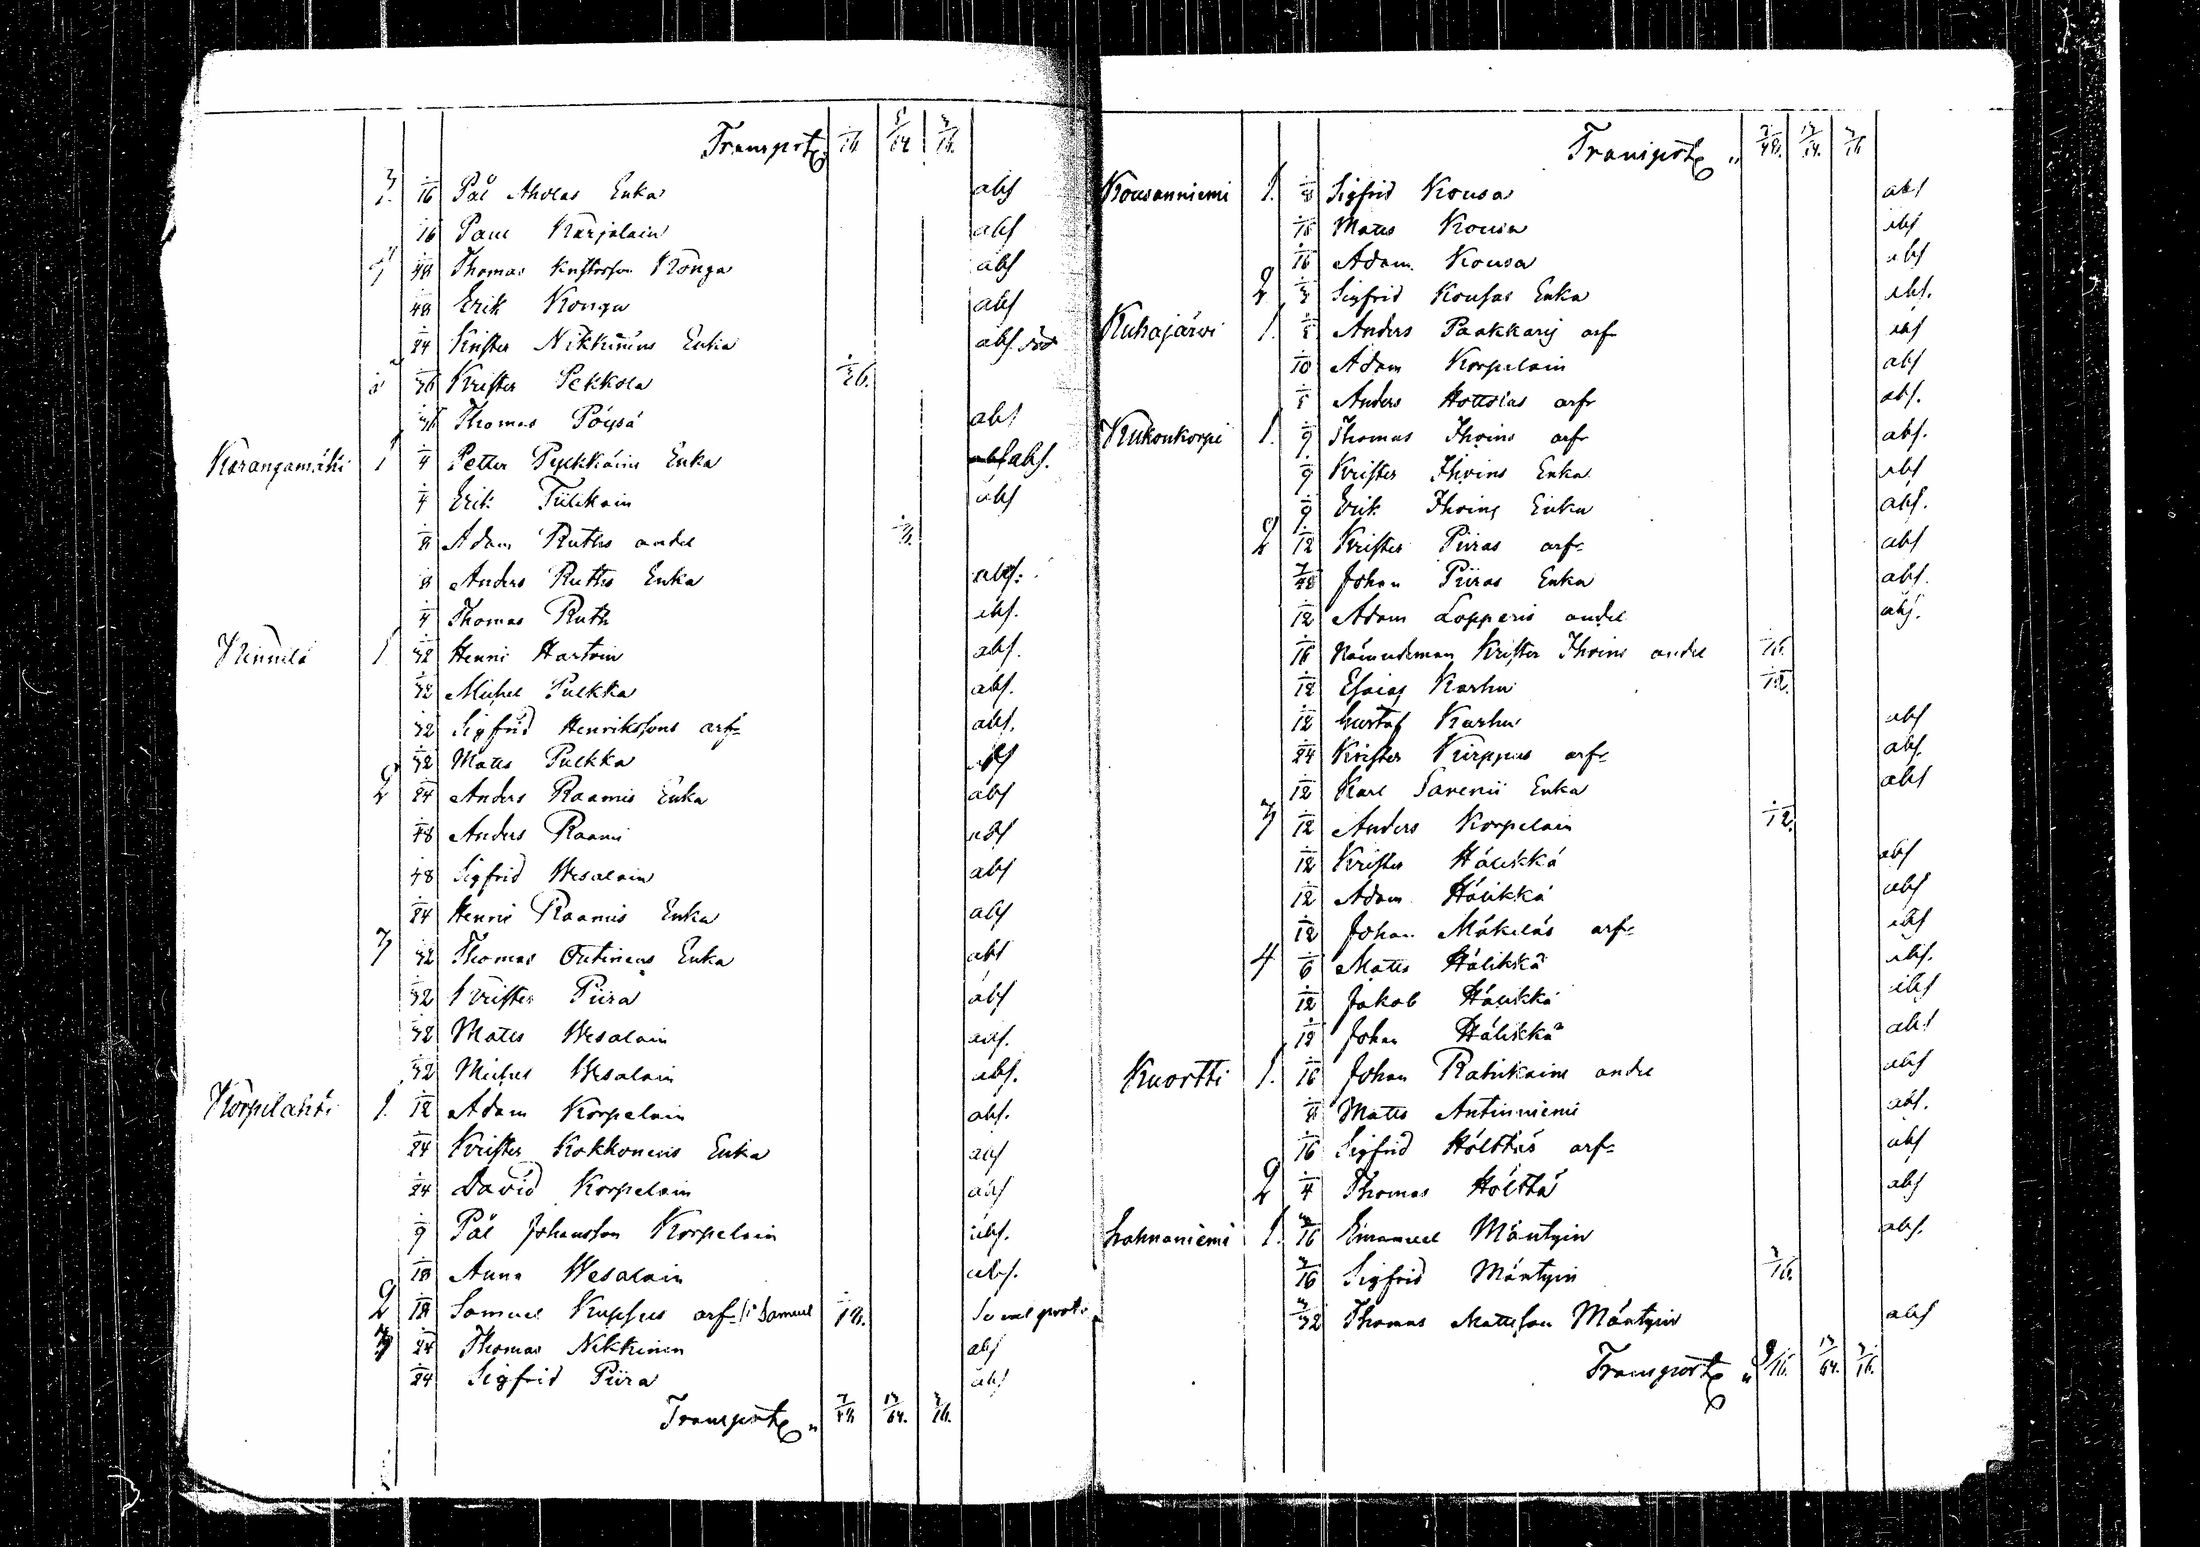 Transport 1/16 5/64 3/16.
3. 1/16 Pål Aholas Enka abs
1/16 Paul Karjalain abs
1/48 Thomas Kristersson Konga abs
1/48 Erik Konga abs
1/24 Krister Nikkinins Enka abs.
1/36 Krister Pekkola 1/36.
1/36 Thomas Pöysä abs
Karangamäki 1 1/4 Petter Pylkkäins Enka abs.
1/4 Erik Tiilikain abs
1/8 Adam Ruths andel 1/8.
1/8 Anders Ruths Enka abs.
1/4 Thomas Ruth abs.
Kinnilä 1 1/32 Henric Hartoin abs.
1/32 Michel Pulkka abs.
1/32 Sigfrid Henrikssons arf abs.
1/32 Matts Pulkka abs
2 1/24 Anders Raamis Enka abs
1/48 Anders Raami abs
1/48 Sigfrid Wesalain abs
1/24 Henric Raamis Enka abs
3 1/32 Thomas Outinens Enka abs
1/32 Krister Piira abs
1/32 Matts Wesalain abs.
1/32 Michel Wesalain abs.
Korpilahti 1. 1/12 Adam Korpelain abs.
1/24 Krister Kokkonens Enka abs
1/24 David Korpelain abs
1/9 Pål Johansson Korpelain abs.
1/18 Anna Wesalain abs.
2 1/18 Samuel arf Samuel 1/18.
3 1/24 Thomas Nikkinen abs
1/24 Sigfrid Piira abs
Transport 7/48 13/64. 3/16.
Transport 7/48. 13/64. 3/16
Kousanniemi 1. 1/8 Sigfrid Kousa abs
1/16 Matts Kousa abs
1/16 Adam Kousa abs
2 Sigfrid Kousas Enka abs.
Kuhajärvi 1. 1/5 Anders Paakkaris arf abs
1/10 Adam Korpelain abs
1/5 Anders Hottolas arfr abs.
Kukonkorpi 1. 1/9 Thomas Ihoins arfr abs.
1/9 Krister Ihoins Enka abs
1/9 Erik Ihoins Enka abs.
2 1/12 Krister Piiras arfr abs
7/48 Johan Piiras Enka abs.
1/12 Adam Lopperis andel abs.
1/16 Nämndeman Krister Ihoins andel 1/16.
1/12 Esaias Karhu 1/12.
1/12 Gustaf Karhu abs
1/24 Krister Kirppus arfr abs.
1/12 Karl Savenii Enka abs
3 1/12 Anders Korpelain 1/12.
1/12 Krister Hälikkä abs
1/12 Adam Hälikkä abs
1/12 Johan Mäkeläs arfr abs
4 1/6 Matts Hälikkä abs.
1/12 Jakob Hälikkä abs
1/12 Johan Hälikkä abs
Kuortti 1. 1/16 Johan Rahikains andel abs
1/8 Matts Antinniemi abs.
1/16 Sigfrid Hölttäs arfr abs
2 1/4 Thomas Hölttä abs
Lahnaniemi 1. 3/16 Emanuel Mäntyin abs.
3/16 Sigfrid Mäntyin 3/16.
3/32 Thomas Mattsson Mäntyin abs
Transport 9/16. 13/64. 3/16.